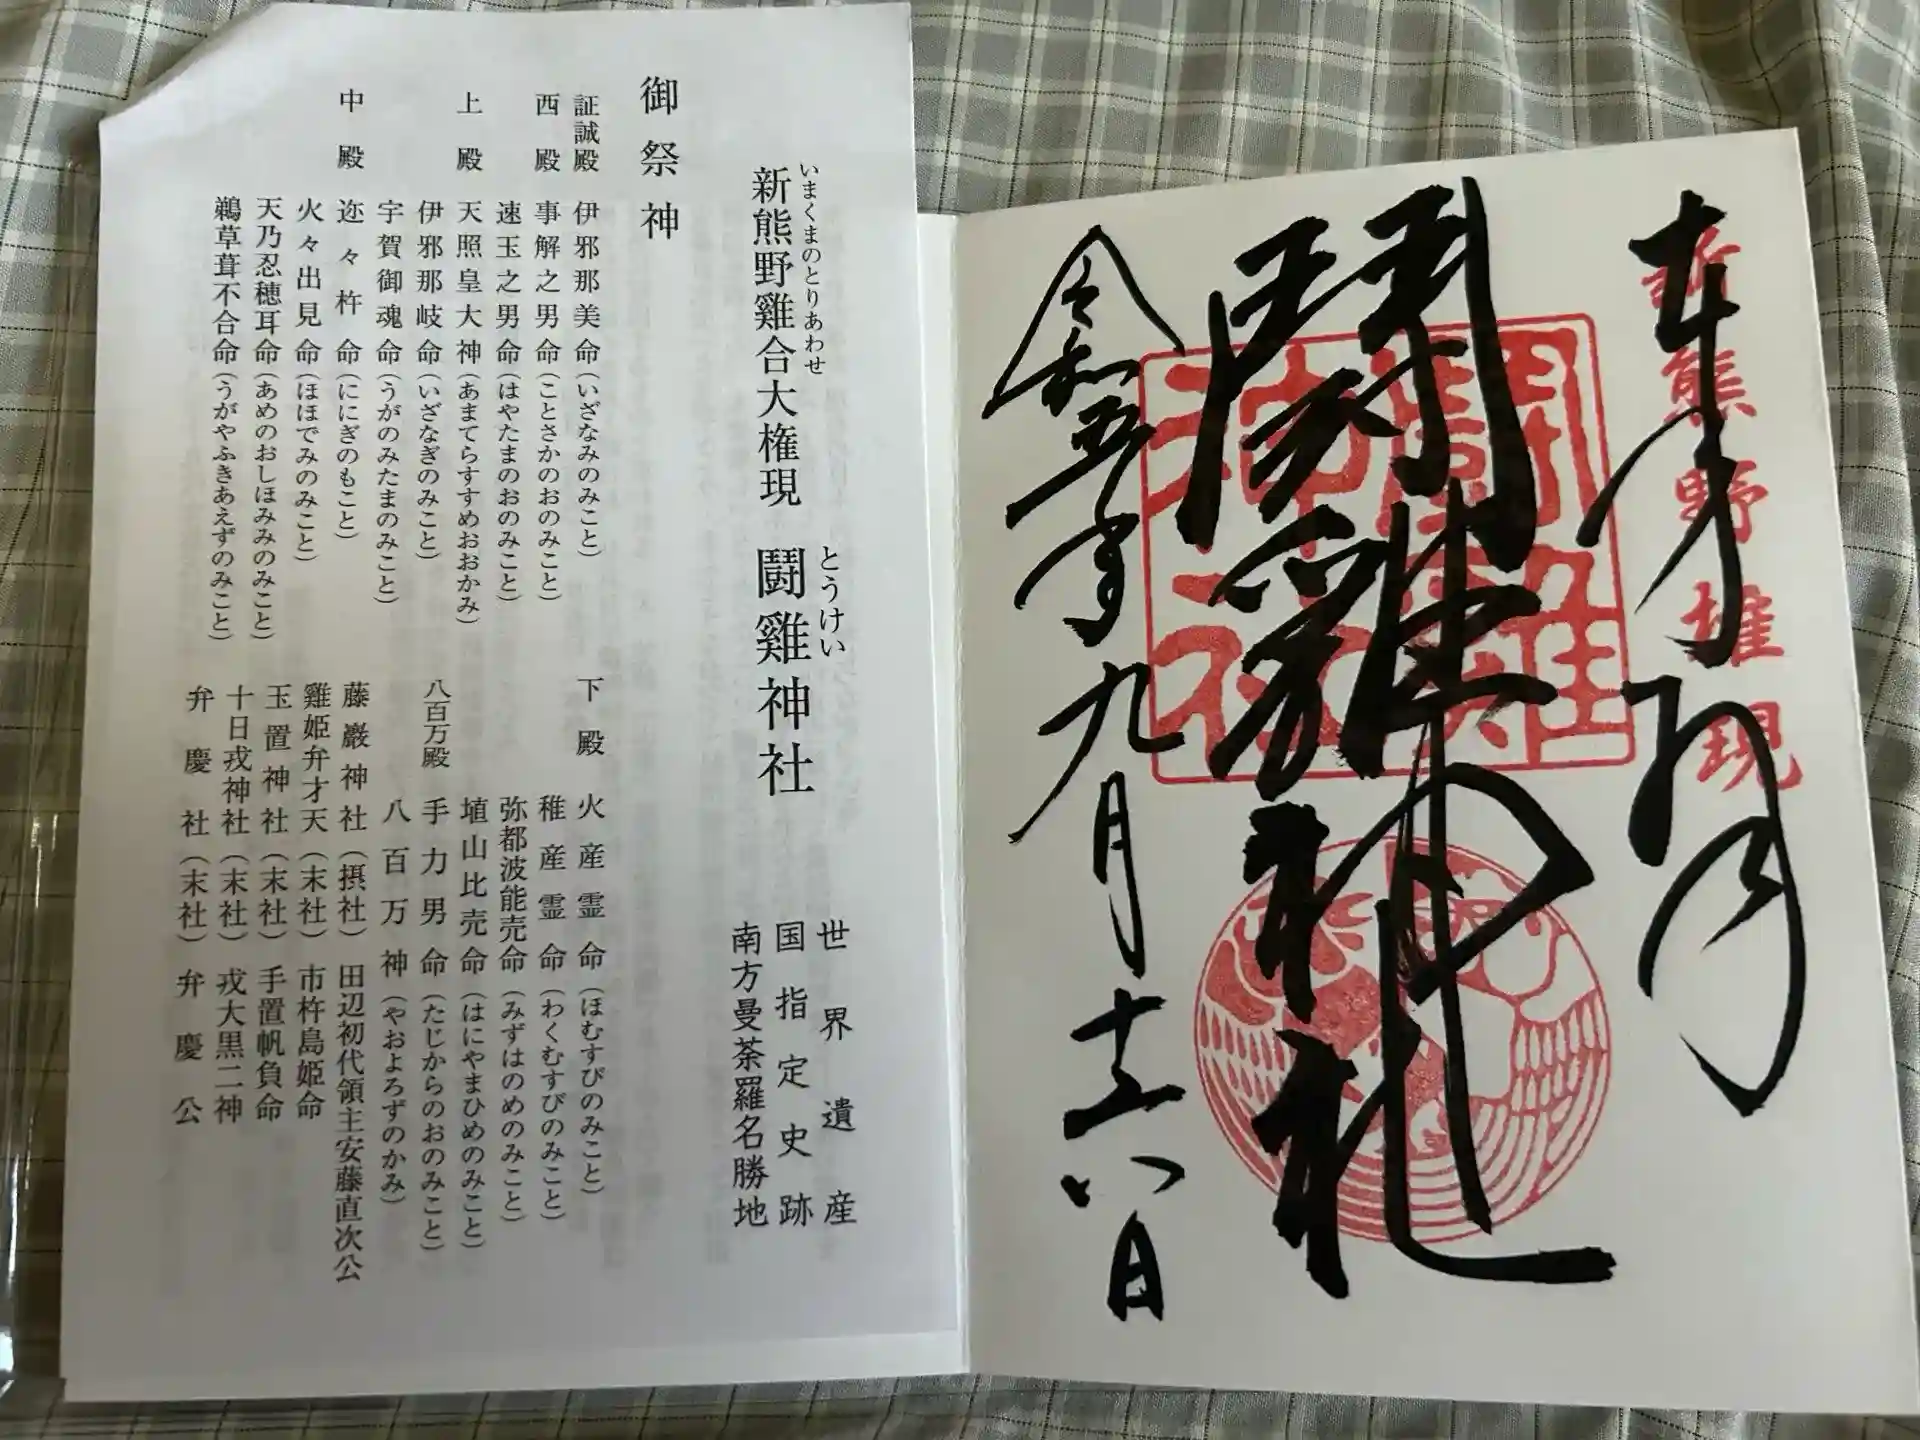 奉拝
新熊野権現
闘雞神社
闘雞神社
令和五年九月十八日
世界遺産
国指定史跡
南方曼荼羅名勝地
いまくまのとりあわせ とうけい
新熊野雞合大権現 闘雞神社
御祭神
証誠殿 伊邪那美命(いざなみのみこと)
西殿 事解之男命(ことさかのおのみこと)
速玉之男命(はやたまのおのみこと)
上殿 天照皇大神(あまてらすすめおおかみ)
伊邪那岐命(いざなぎのみこと)
宇賀御魂命(うがのみたまのみこと)
中殿 迩々杵命(ににぎのもこと)
火々出見命(ほほでみのみこと)
天乃忍穂耳命(あめのおしほみみのみこと)
鵜草葺不合命(うがやふきあえずのみこと)
下殿 火産霊命(ほむすびのみこと)
稚産霊命(わくむすびのみこと)
弥都波能売命(みずはのめのみこと)
埴山比売命(はにやまひめのみこと)
八百万殿 手力男命(たじからのおのみこと)
八百万神(やおよろずのかみ)
藤巖神社(摂社) 田辺初代領主安藤直次公
雞姫弁才天(末社) 市杵島姫命
玉置神社(末社) 手置帆負命
十日戎神社(末社) 戎大黒二神
弁慶社(末社) 弁慶公